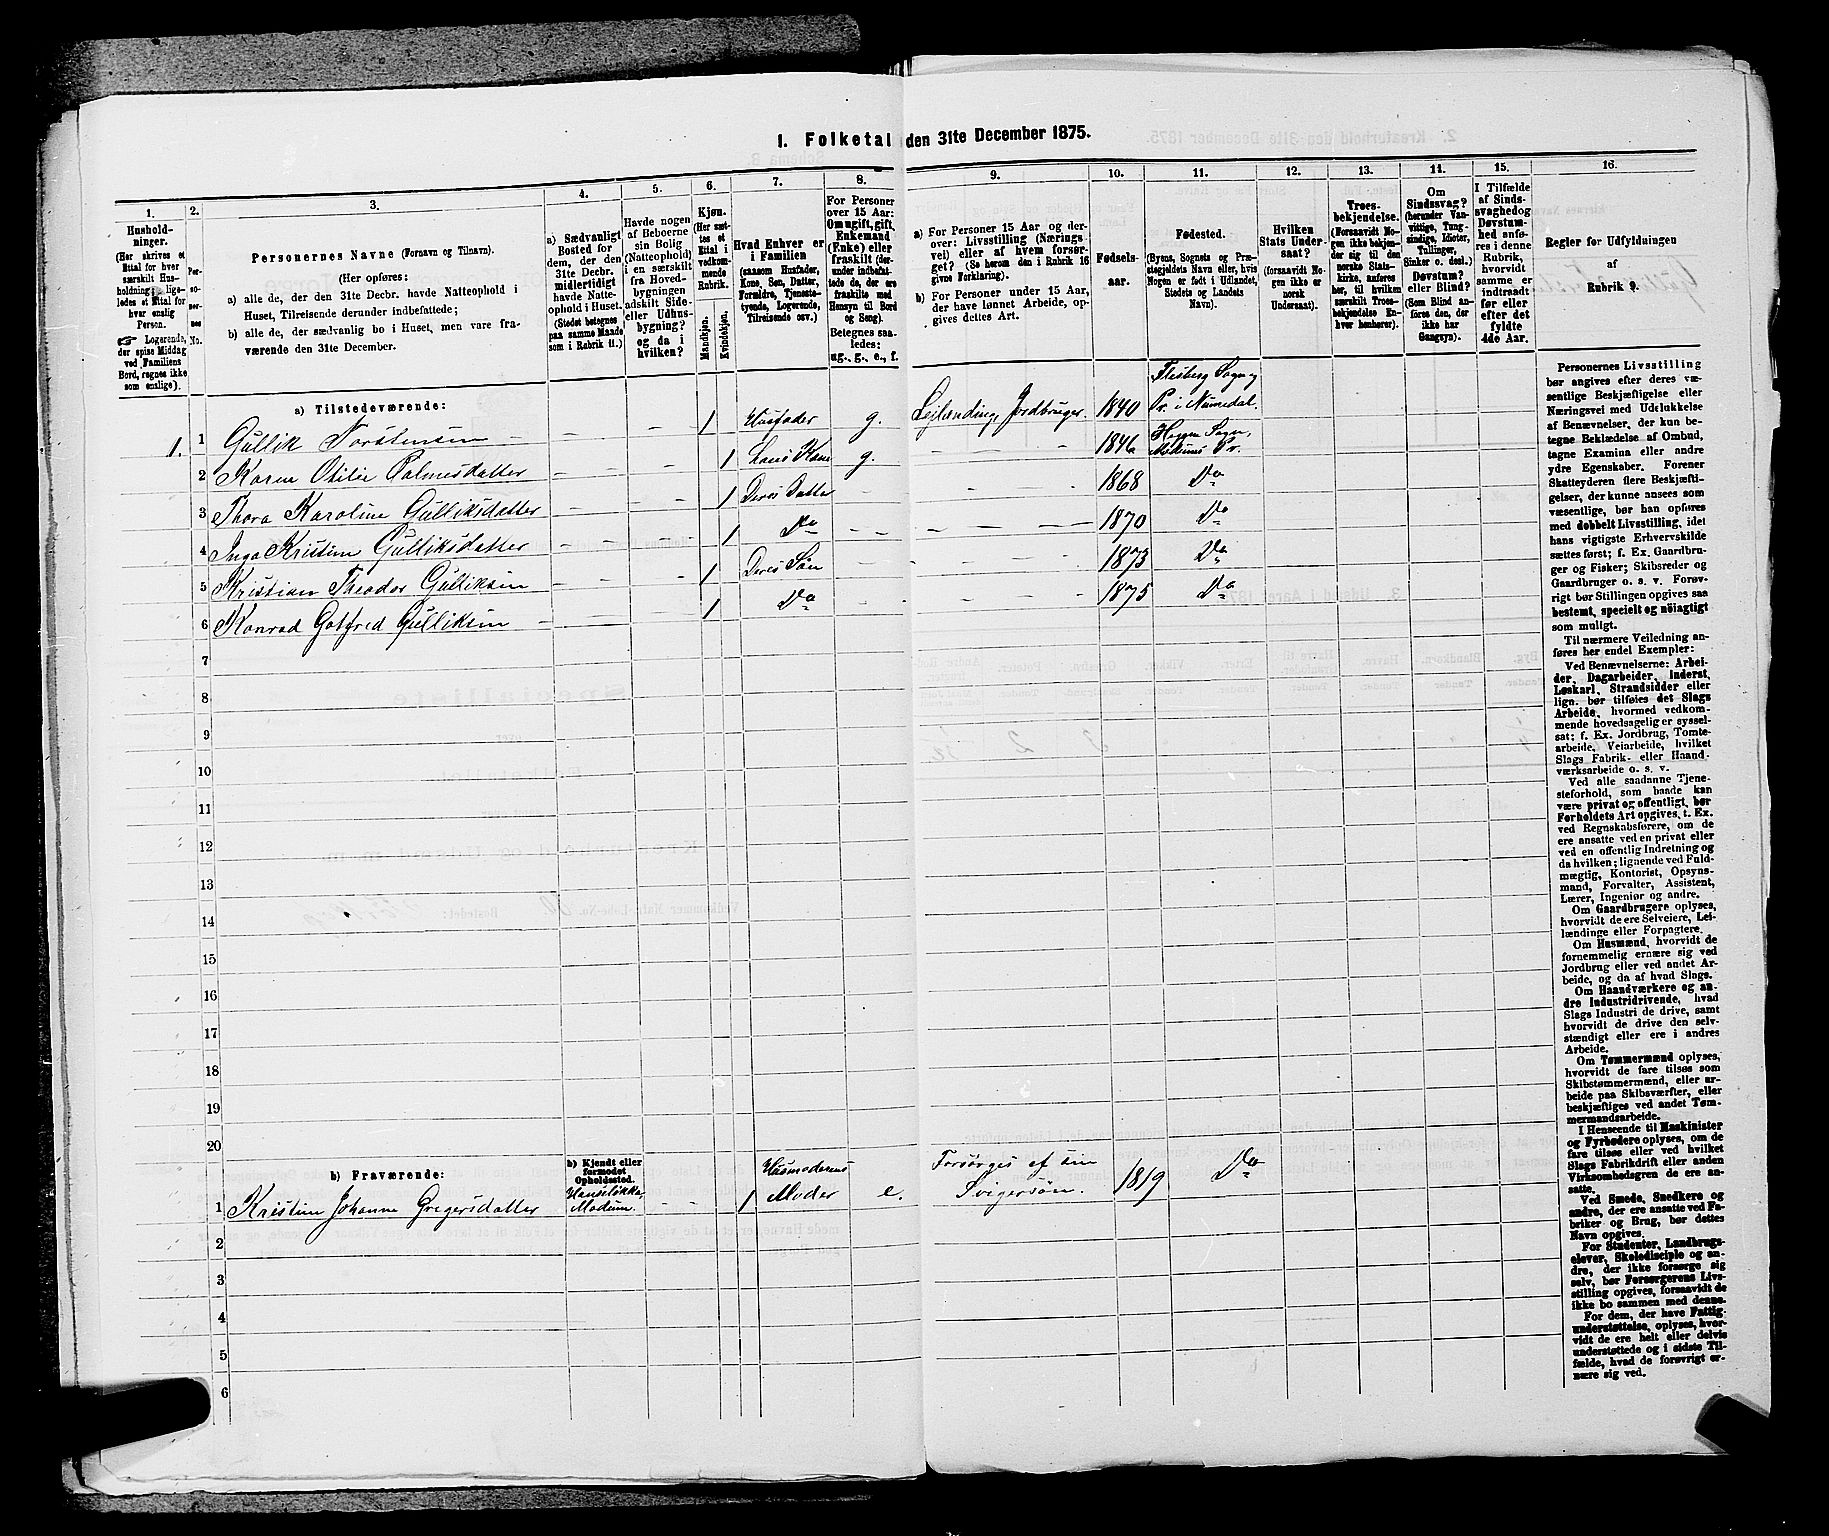 1. Folketal den 31te December 1875.
1.
2.
3.
4.
5.
6.
7.
8.
9.
10.
11.
12.
13.
14.
15.
16.
Hushold-
ninger.
(Her skrives et
Ettal for hver
særskilt Hus-
holdning; lige-
ledes et Ettal for
hver enslig
Person.
☞ Logerende,
der spise Middag
ved Familiens
Bord, regnes ikke
som enslige).
Per-
so-
ner-
nes
No.
Personernes Navne (Fornavn og Tilnavn).
(Her opføres:
a) alle de, der den 31te Decbr. havde Natteophold i
Huset, Tilreisende derunder indbefattede;
b) alle de, der sædvanlig bo i Huset, men vare fra-
værende den 31te December.
a) Sædvanligt
Bosted for
dem, der den
31te Decbr.
midlertidigt
havde Natte-
ophold i Huset.
(Stedet betegnes
paa samme Maade
som i Rubrik 11.)
Havde nogen
af Beboerne
sin Bolig
(Natteophold)
i en særskilt
fra Hoved-
bygningen
adskilt Side-
eller Udhus-
bygning?
og da i
hvilken?
Kjøn.
(Her sæt-
tes et
Ettal i
vedkom-
mende
Rubrik.
Mandkjøn.
Kvindekjøn.
Hvad Enhver er
i Familien
(saasom Husfader,
Kone, Søn, Datter,
Forældre, Tjeneste-
tyende, Logerende,
Tilreisende osv.)
For Personer
over 15 Aar:
Om ugift, gift,
Enkemand
(Enke) eller
fraskilt (der-
under indbefat-
tede de, der ere
fraskilte med
Hensyn til Bord
og Seng)
Betegnes saa-
ledes:
ug., g., e., f.
a) For Personer 15 Aar og der-
over: Livsstilling (Nærings-
vei) eller af hvem forsør-
get? (Se herom den i Rubrik 16
givne Forklaring).
b) For Personer under 15 Aar,
der have lønnet Arbeide, op-
gives dettes Art.
Fødsels-
aar.
Fødested.
(Byens, Sognets og Præ-
stegjeldets Navn eller, hvis
Nogen er født i Udlandet,
Stedets og Landets
Navn).
Hvilken
Stats Under-
saat?
(forsaavidt No-
gen ikke er
norsk
Undersaat).
Troes-
bekjendelse.
(Forsaavidt No-
gen ikke bekjen-
der sig til den
norske Stats-
kirke, anføres
her, til hvilken
særskilt Troes-
bekjendelse En-
hver henhører).
Om
Sindssvag?
(herunder Van-
vittige, Tung-
sindige, Idioter,
Tullinger,
Sinker o. desl.)
Døvstum?
eller Blind?
(Som Blind an-
føres den, der
ikke har
Gangsyn).
I Tilfælde
af Sinds-
svaghed og
Døvstum-
hed anfø-
res i denne
Rubrik,
hvorvidt
samme er
indtraadt
før eller
efter det
fyldte
4de Aar.
Regler for Udfyldningen
af
Rubrik 9.
a) Tilstedeværende:
1. 1 Gullik Torstensen - - - 1 Husfader g. Leilænding, Jordbruger. 1840 Flesberg Sogn og
Pr. i Numedal.
2 Karen Otilie Palmesdatter - - - 1 Hans Kone g. - - - 1846 Heggen Sogn,
Modums Pr.
3 Thora Karoline Gulliksdatter - - - 1 Deres Datter - - 1868 Do
4 Inga Kristine Gulliksdatter - - - 1 Do - - - - 1870 Do
5 Kristian Theodor Gulliksen - - - 1 Deres Søn - - - 1873 Do
6 Konrad Gotfred Gulliksen - - - 1 Do - - - - 1875 Do
7
8
9
10
11
12
13
14
15
16
17
18
19
20
b) Fraværende:
b) Kjendt eller
formodet
Opholdssted.
1 Kristine Johanne Gregersdatter
Modum. - - 1 Husmoderens
Moder e. Forsørges af sin
Svigersøn. 1819 Do
2
3
4
5
6
Personernes Livsstilling
bør angives efter deres væ-
sentlige Beskjæftigelse eller
Næringsvei med Udelukkelse
af Benævnelser, der kun be-
tegne Beklædelse af Ombud,
tagne Examina eller andre
ydre Egenskaber. Forener
Skatteyderen flere Beskjæfti-
gelser, der kunne ansees som
væsentlige, bør han opføres
med dobbelt Livsstilling, idet
hans vigtigste Erhvervskilde
sættes først; f. Ex. Gaardbru-
ger og Fisker; Skibsreder og
Gaardbruger o. s. v. Forøv-
rigt bør Stillingen opgives saa
bestemt, specielt og nöiagtigt
som muligt.
Til nærmere Veiledning an-
føres her endel Exempler:
Ved Benævnelserne: Arbei-
der, Dagarbeider, Inderst,
Løskarl, Strandsidder eller
lign. bør tilføies det Slags
Arbeide, hvormed vedkom-
mende hovedsagelig er syssel-
sat; f. Ex. Jordbrug, Tomte-
arbeide, Veiarbeide, hvilket
Slags Fabrik- eller Haand-
værksarbeide o. s. v.
Ved alle saadanne Tjene-
steforhold, som baade kan
være privat og offentligt, bør
Forholdets Art opgives, t. Ex.
ved Regnskabsførere, om de
ere ansatte ved en privat eller
ved en offentlig Indretning og
da hvilken; lignende ved Fuld-
mægtig, Kontorist, Opsyns-
mand, Forvalter, Assistent,
Lærer, Ingeniør og andre.
Om Gaardbrugere oplyses,
hvorvidt de ere Selveiere, Lei-
lændinge eller Forpagtere.
Om Husmænd, hvorvidt de
fornemmelig ernære sig ved
Jordbrug eller ved andet Ar-
beide, og da af hvad Slags.
Om Haandværkere og an-
dre Industridrivende, hvad
Slags Industri de drive, samt
hvorvidt de drive den selv-
stændigt eller ere i andres
Arbeide.
Om Tømmermænd oplyses,
hvorvidt de fare tilsøs som
Skibstømmermænd, eller ar-
beide paa Skibsværfter, eller
beskjæftiges ved andet Tøm-
mermandsarbeide.
I Henseende til Maskinister
og Fyrbødere oplyses, om de
fare tilsøs eller ved hvilket
Slags Fabrikdrift eller anden
Virksomhedsgren de ere an-
satte.
Ved Smede, Snedkere og
andre, der ere ansatte ved Fa-
briker og Brug, bør dettes
Navn opgives.
For Studenter, Landbrugs-
elever, Skoledisciple og an-
dre, der ikke forsørge sig
selv, bør Forsørgerens Livs-
stilling opgives, forsaavidt de
ikke bo sammen med denne.
For dem, der have Fattig-
understøttelse, oplyses, hvor-
vidt de ere helt eller delvis
understøttede og i sidste Til-
fælde, hvad de forøvrigt er-
nære sig ved.